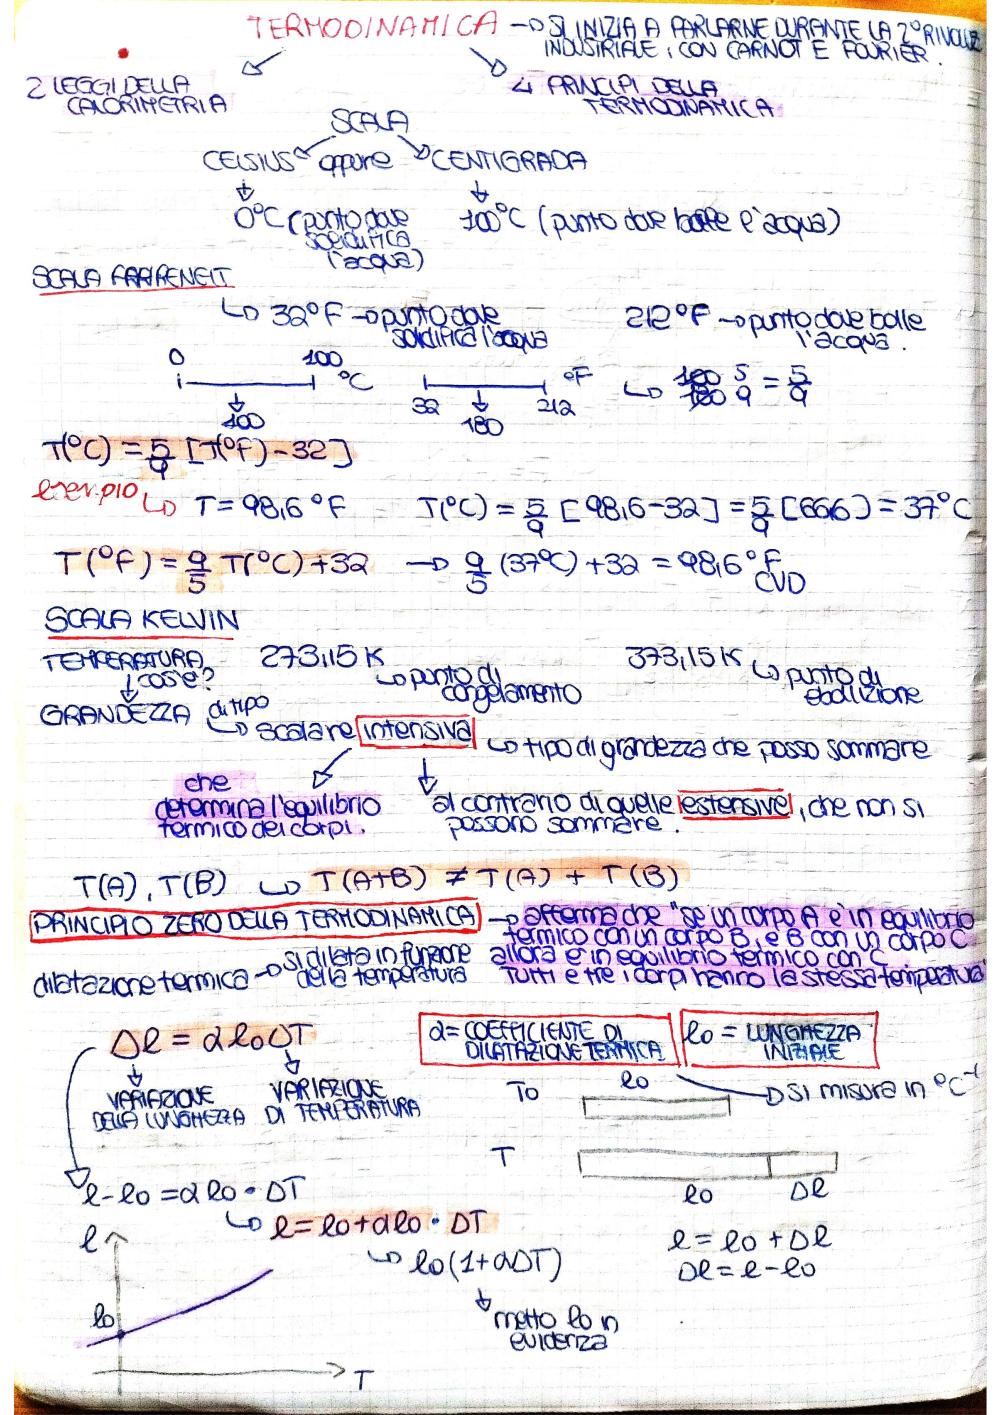 TERMODINAMICA → SI INIZIA A PARLARNE DURANTE LA 2° RIVOLUZ
INDUSTRIALE, CON CARNOT E FOURIER.
2 LEGGI DELLA
CALORIMETRIA
4 PRINCIPI DELLA
TERMODINAMICA
SCALA
CELSIUS oppure CENTIGRADA
0°C (punto dove
solidifica
l'acqua)
100°C (punto dove bolle l'acqua)
SCALA FAHRENEIT
↳ 32°F → punto dove
solidifica l'acqua
212°F → punto dove bolle
l'acqua.
0 100 °C
100
32 212 °F
180
↳ 100/180 5/9 = 5/9
T(°C) = 5/9 [T(°F) - 32]
esempio ↳ T = 98,6 °F T(°C) = 5/9 [98,6-32] = 5/9 [66,6] = 37°C
T(°F) = 9/5 T(°C) + 32 → 9/5 (37°C) + 32 = 98,6°F
CVD
SCALA KELVIN
TEMPERATURA 273,15 K ↳ punto di
congelamento
373,15 K ↳ punto di
ebollizione
↓ cos'è?
GRANDEZZA di tipo
↳ scalare intensiva ↳ tipo di grandezza che posso sommare
che
determina l'equilibrio
termico dei corpi.
al contrario di quelle estensive, che non si
possono sommare.
T(A), T(B) ↳ T(A+B) ≠ T(A) + T(B)
PRINCIPIO ZERO DELLA TERMODINAMICA → afferma che "se un corpo A è in equilibrio
termico con un corpo B, e B con un corpo C
allora è in equilibrio termico con C
Tutti e tre i corpi hanno la stessa temperatura"
dilatazione termica → si dilata in funzione
della temperatura
Δl = α l0 ΔT
VARIAZIONE
DELLA LUNGHEZZA
VARIAZIONE
DI TEMPERATURA
α = COEFFICIENTE DI
DILATAZIONE TERMICA
l0 = LUNGHEZZA
INIZIALE
→ SI misura in °C⁻¹
T0 l0
T
l0 Δl
l - l0 = α l0 · ΔT
↳ l = l0 + α l0 · ΔT
↳ l0 (1 + αΔT)
↓ metto l0 in
evidenza
l = l0 + Δl
Δl = l - l0
l
l0
T